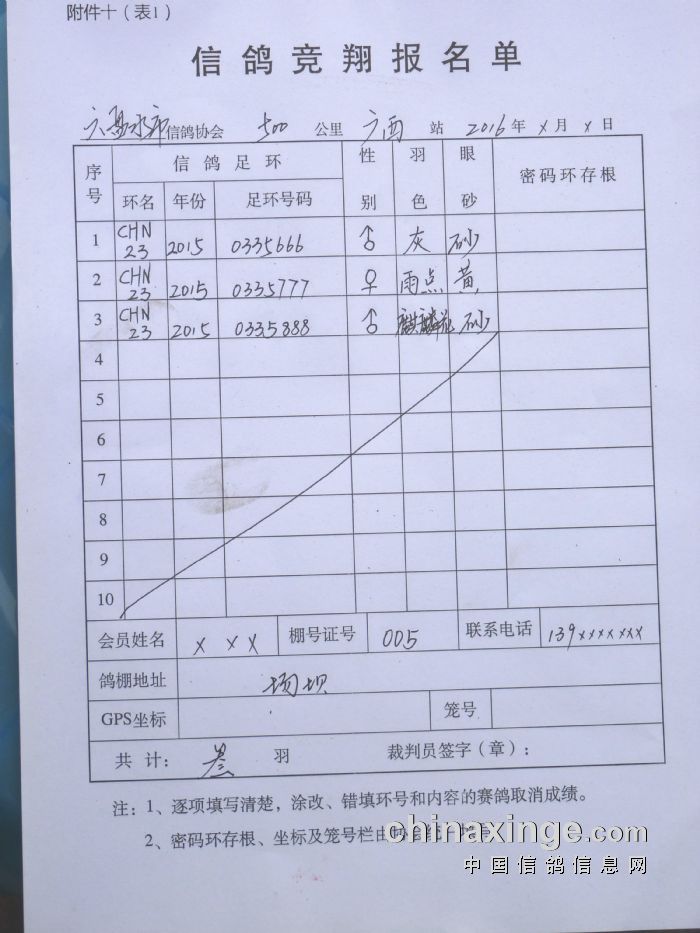 附件十（表1）
信鸽竞翔报名单
六盘水市信鸽协会 500 公里 广西 站 2016 年 x 月 x 日
序号 信鸽足环 性别 羽色 眼砂 密码环存根
环名 年份 足环号码
1 CHN 23 2015 0335666 ♂ 灰 砂
2 CHN 23 2015 0335777 ♀ 雨点 黄
3 CHN 23 2015 0335888 ♂ 麒麟花 砂
4
5
6
7
8
9
10
会员姓名 x x x 棚号证号 005 联系电话 139xxxxxxx
鸽棚地址 场坝
GPS坐标 笼号
共计： 叁 羽 裁判员签字（章）：
注：1、逐项填写清楚，涂改、错填环号和内容的赛鸽取消成绩。
2、密码环存根、坐标及笼号栏由
chinaxinge.com
中国信鸽信息网